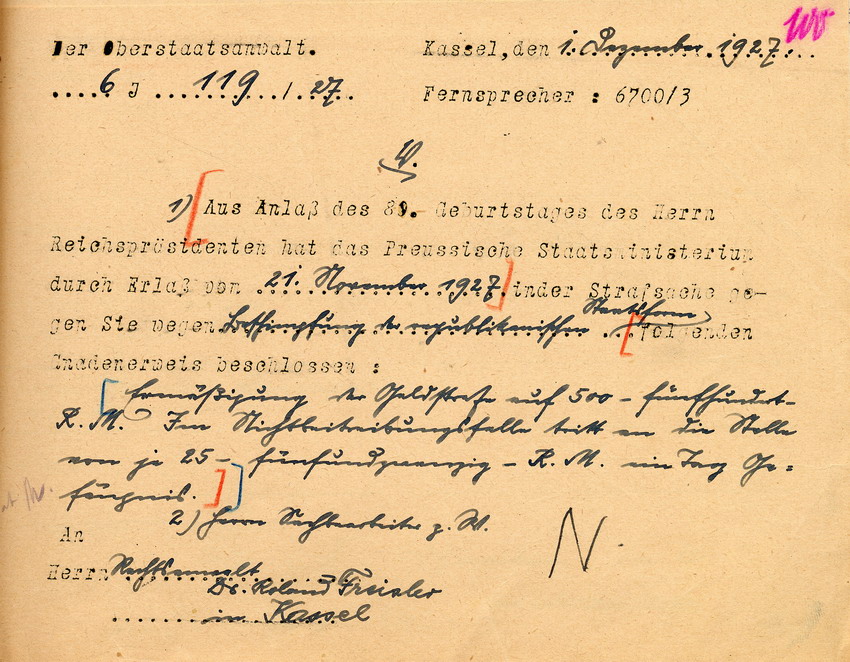 Der Oberstaatsanwalt. Kassel, den 1. Dezember 1927.
6 J 119 / 27. Fernsprecher : 6700/3
V.
1) Aus Anlaß des 80. Geburtstages des Herrn
Reichspräsidenten hat das Preussische Staatsministerium
durch Erlaß von 21. November 1927. inder Strafsache ge-
gen Sie wegen Beschimpfung der republikanischen Staatsform folgenden
Gnadenerweis beschlossen :
Ermäßigung der Geldstrafe auf 500 - fünfhundert-
R. M. Im Nichtbeitreibungsfalle tritt an die Stelle
von je 25 - fünfundzwanzig - R. M. ein Tag Ge=
fängnis.
2) Herrn Sachbearbeiter z. W.
An
Herrn Rechtsanwalt
Dr. Roland Freisler
in Kassel
N.